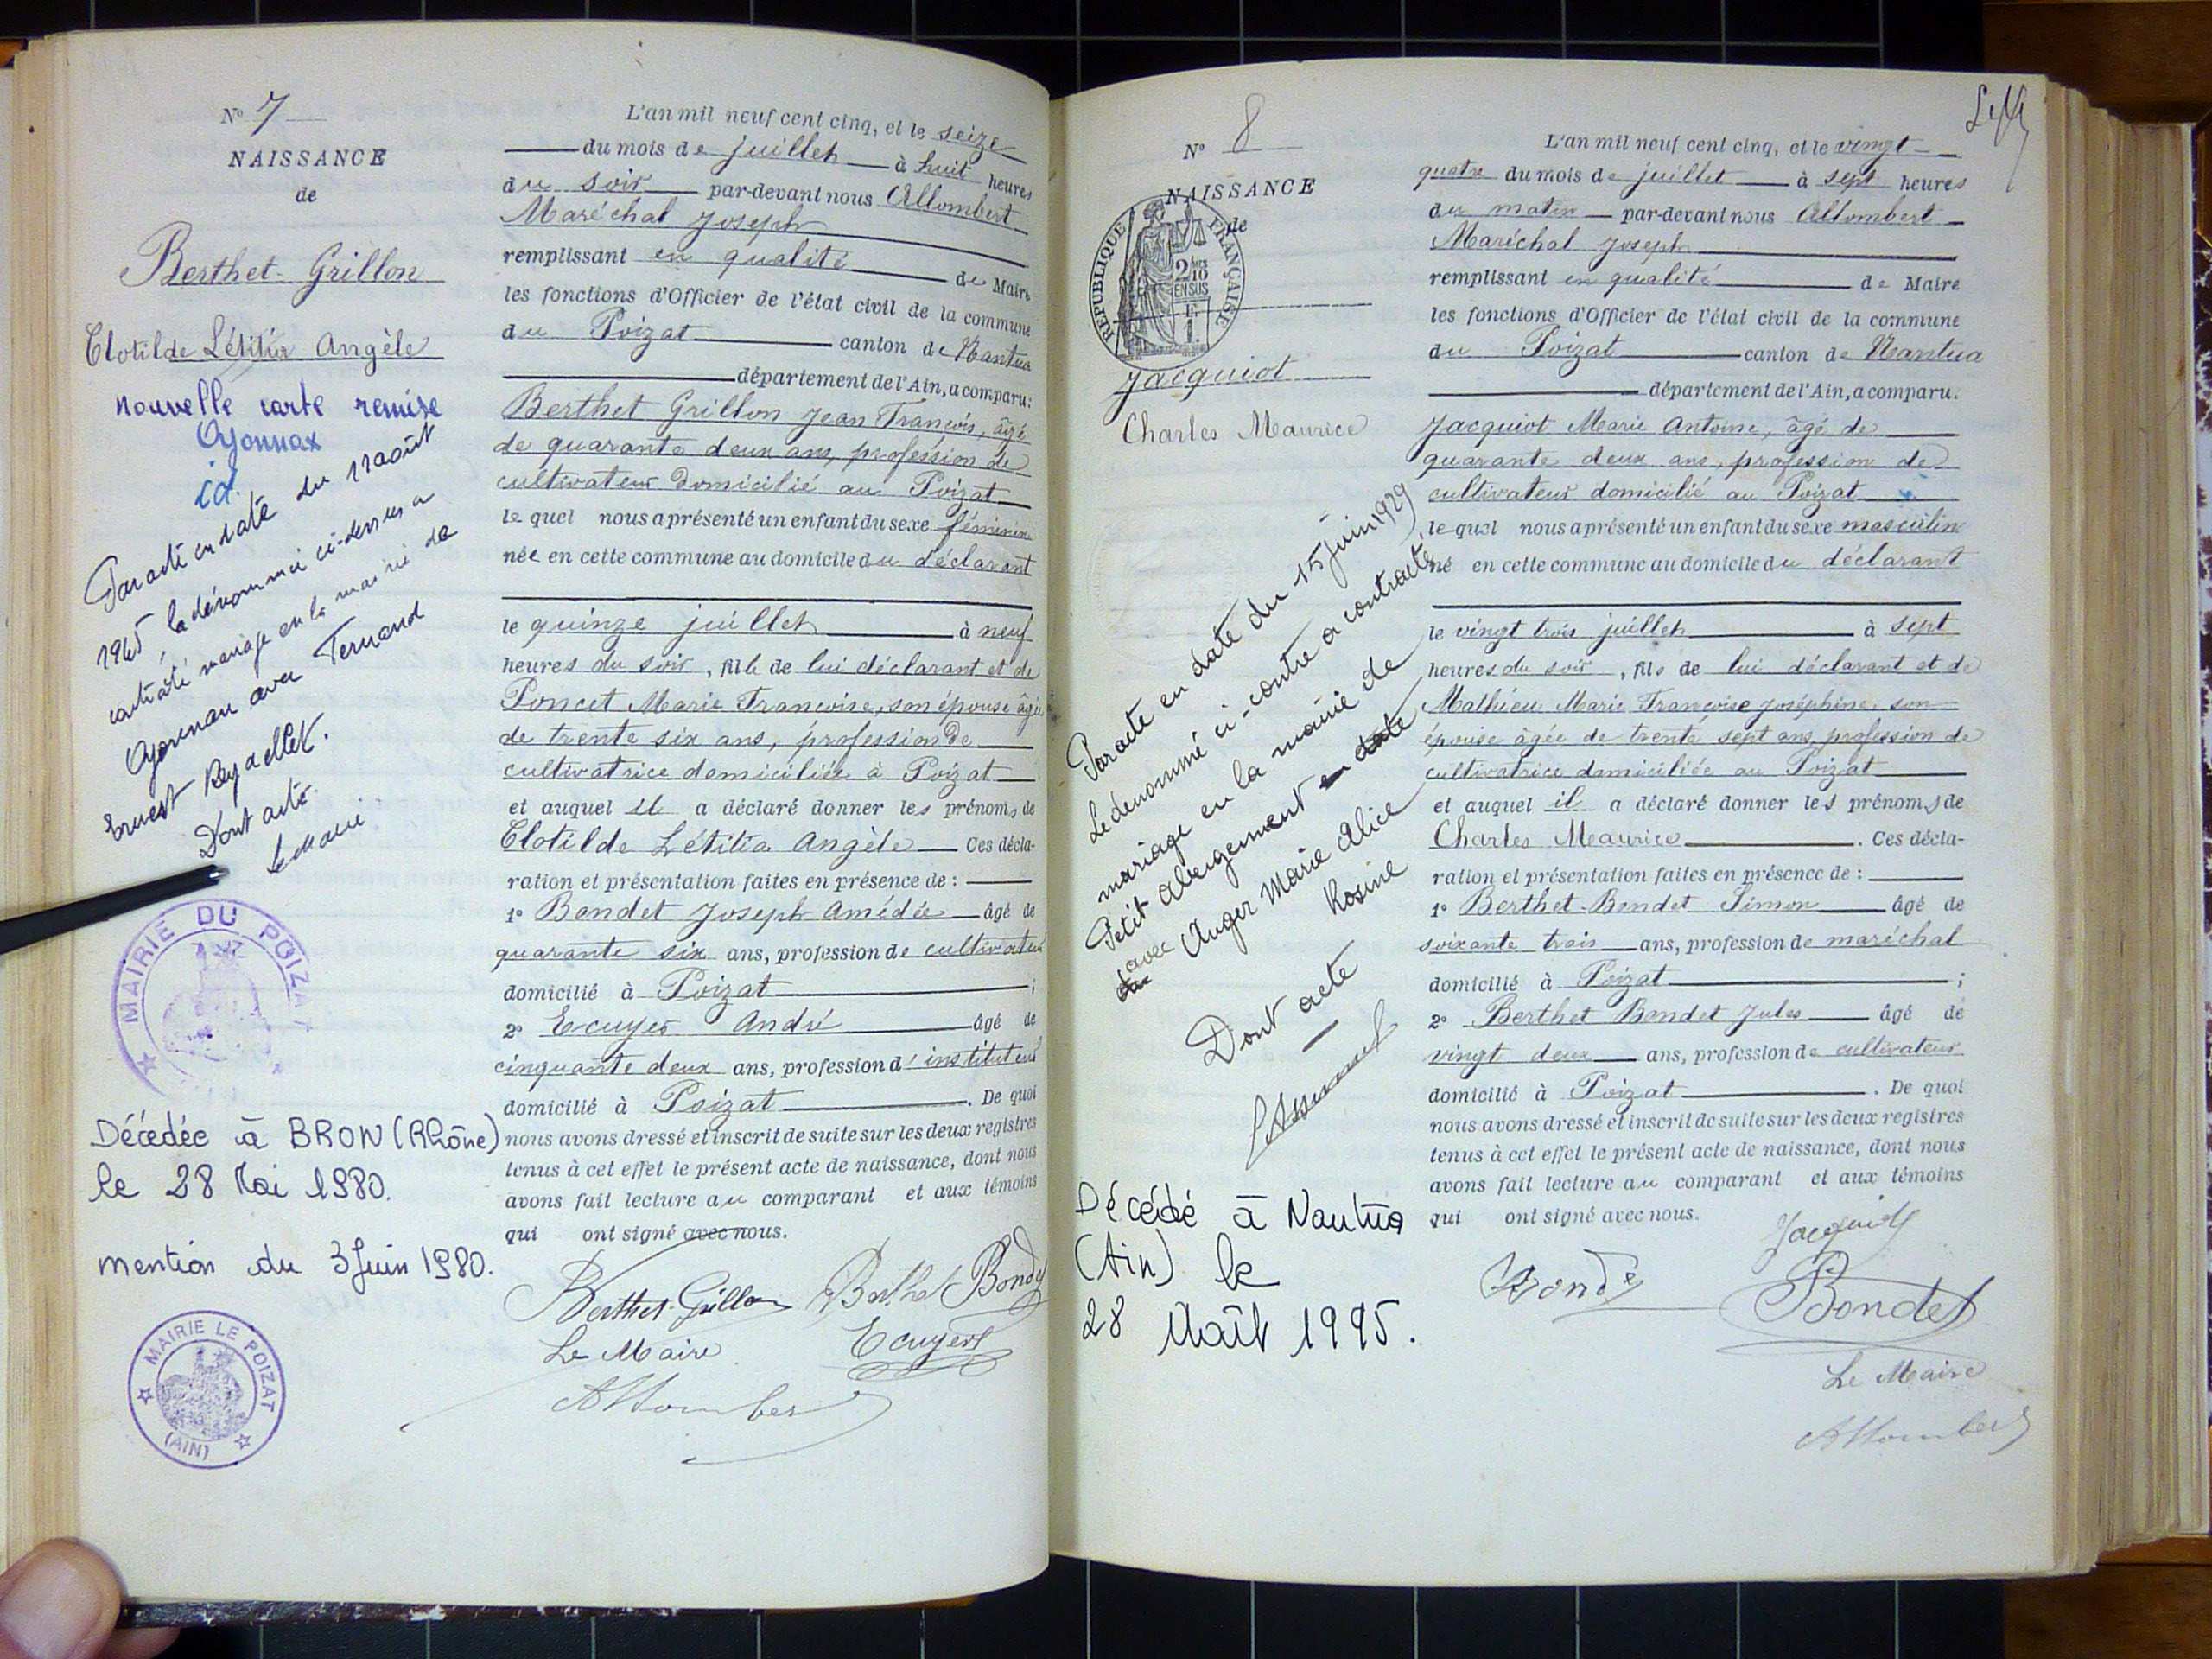 N° 7
NAISSANCE
de
Berthet-Grillon
Clotilde Létitia Angèle
nouvelle carte remise
Oyonnax
id.
Par acte en date du 11 août
1965, la dénommée ci-dessus a
contracté mariage en la mairie de
Oyonnax avec Fernand
Ernest Reydellet.
Dont acte.
Le Maire
MAIRIE DU POIZAT
Décédée à BRON (Rhône)
le 28 Mai 1980.
mention du 3 Juin 1980.
MAIRIE LE POIZAT
(AIN)
L'an mil neuf cent cinq, et le seize
du mois de juillet à huit heures
du soir par-devant nous Allombert
Maréchal Joseph
remplissant en qualité de Maire
les fonctions d'Officier de l'état civil de la commune
du Poizat canton de Nantua
département de l'Ain, a comparu:
Berthet Grillon Jean François, âgé
de quarante deux ans, profession de
cultivateur domicilié au Poizat
le quel nous a présenté un enfant du sexe féminin
née en cette commune au domicile du déclarant
le quinze juillet à neuf
heures du soir, fille de lui déclarant et de
Poncet Marie Francoise, son épouse âgée
de trente six ans, profession de
cultivatrice domiciliée à Poizat
et auquel il a déclaré donner les prénoms de
Clotilde Létitia Angèle Ces décla-
ration et présentation faites en présence de :
1° Bondet Joseph Amédée âgé de
quarante six ans, profession de cultivateur
domicilié à Poizat ;
2° Ecuyer André âgé de
cinquante deux ans, profession d'instituteur
domicilié à Poizat. De quoi
nous avons dressé et inscrit de suite sur les deux registres
tenus à cet effet le présent acte de naissance, dont nous
avons fait lecture au comparant et aux témoins
qui ont signé avec nous.
Berthet-Grillon Berthet Bondet
Le Maire Ecuyer
Allombert
N° 8
NAISSANCE
de
REPUBLIQUE FRANÇAISE
2/10 EN SUS
Jacquiot
Charles Maurice
Par acte en date du 15 juin 1929
Le dénommé ci-contre a contracté
mariage en la mairie de
Petit Abergement en date
avec Auger Marie Alice
Rosine
Dont acte
Décédé à Nantua
(Ain) le
28 Août 1995.
L'an mil neuf cent cinq, et le vingt
quatre du mois de juillet à sept heures
du matin par-devant nous Allombert
Maréchal Joseph
remplissant en qualité de Maire
les fonctions d'Officier de l'état civil de la commune
du Poizat canton de Nantua
département de l'Ain, a comparu:
Jacquiot Marie Antoine, âgé de
quarante deux ans, profession de
cultivateur domicilié au Poizat
le quel nous a présenté un enfant du sexe masculin
né en cette commune au domicile du déclarant
le vingt trois juillet à sept
heures du soir, fils de lui déclarant et de
Mathieu Marie Françoise Joséphine son
épouse âgée de trente sept ans, profession de
cultivatrice domiciliée au Poizat
et auquel il a déclaré donner les prénoms de
Charles Maurice. Ces décla-
ration et présentation faites en présence de :
1° Berthet-Bondet Simon âgé de
soixante trois ans, profession de maréchal
domicilié à Poizat ;
2° Berthet Bondet Jules âgé de
vingt deux ans, profession de cultivateur
domicilié à Poizat. De quoi
nous avons dressé et inscrit de suite sur les deux registres
tenus à cet effet le présent acte de naissance, dont nous
avons fait lecture au comparant et aux témoins
qui ont signé avec nous.
Jacquiot
Bondet
Le Maire
Allombert